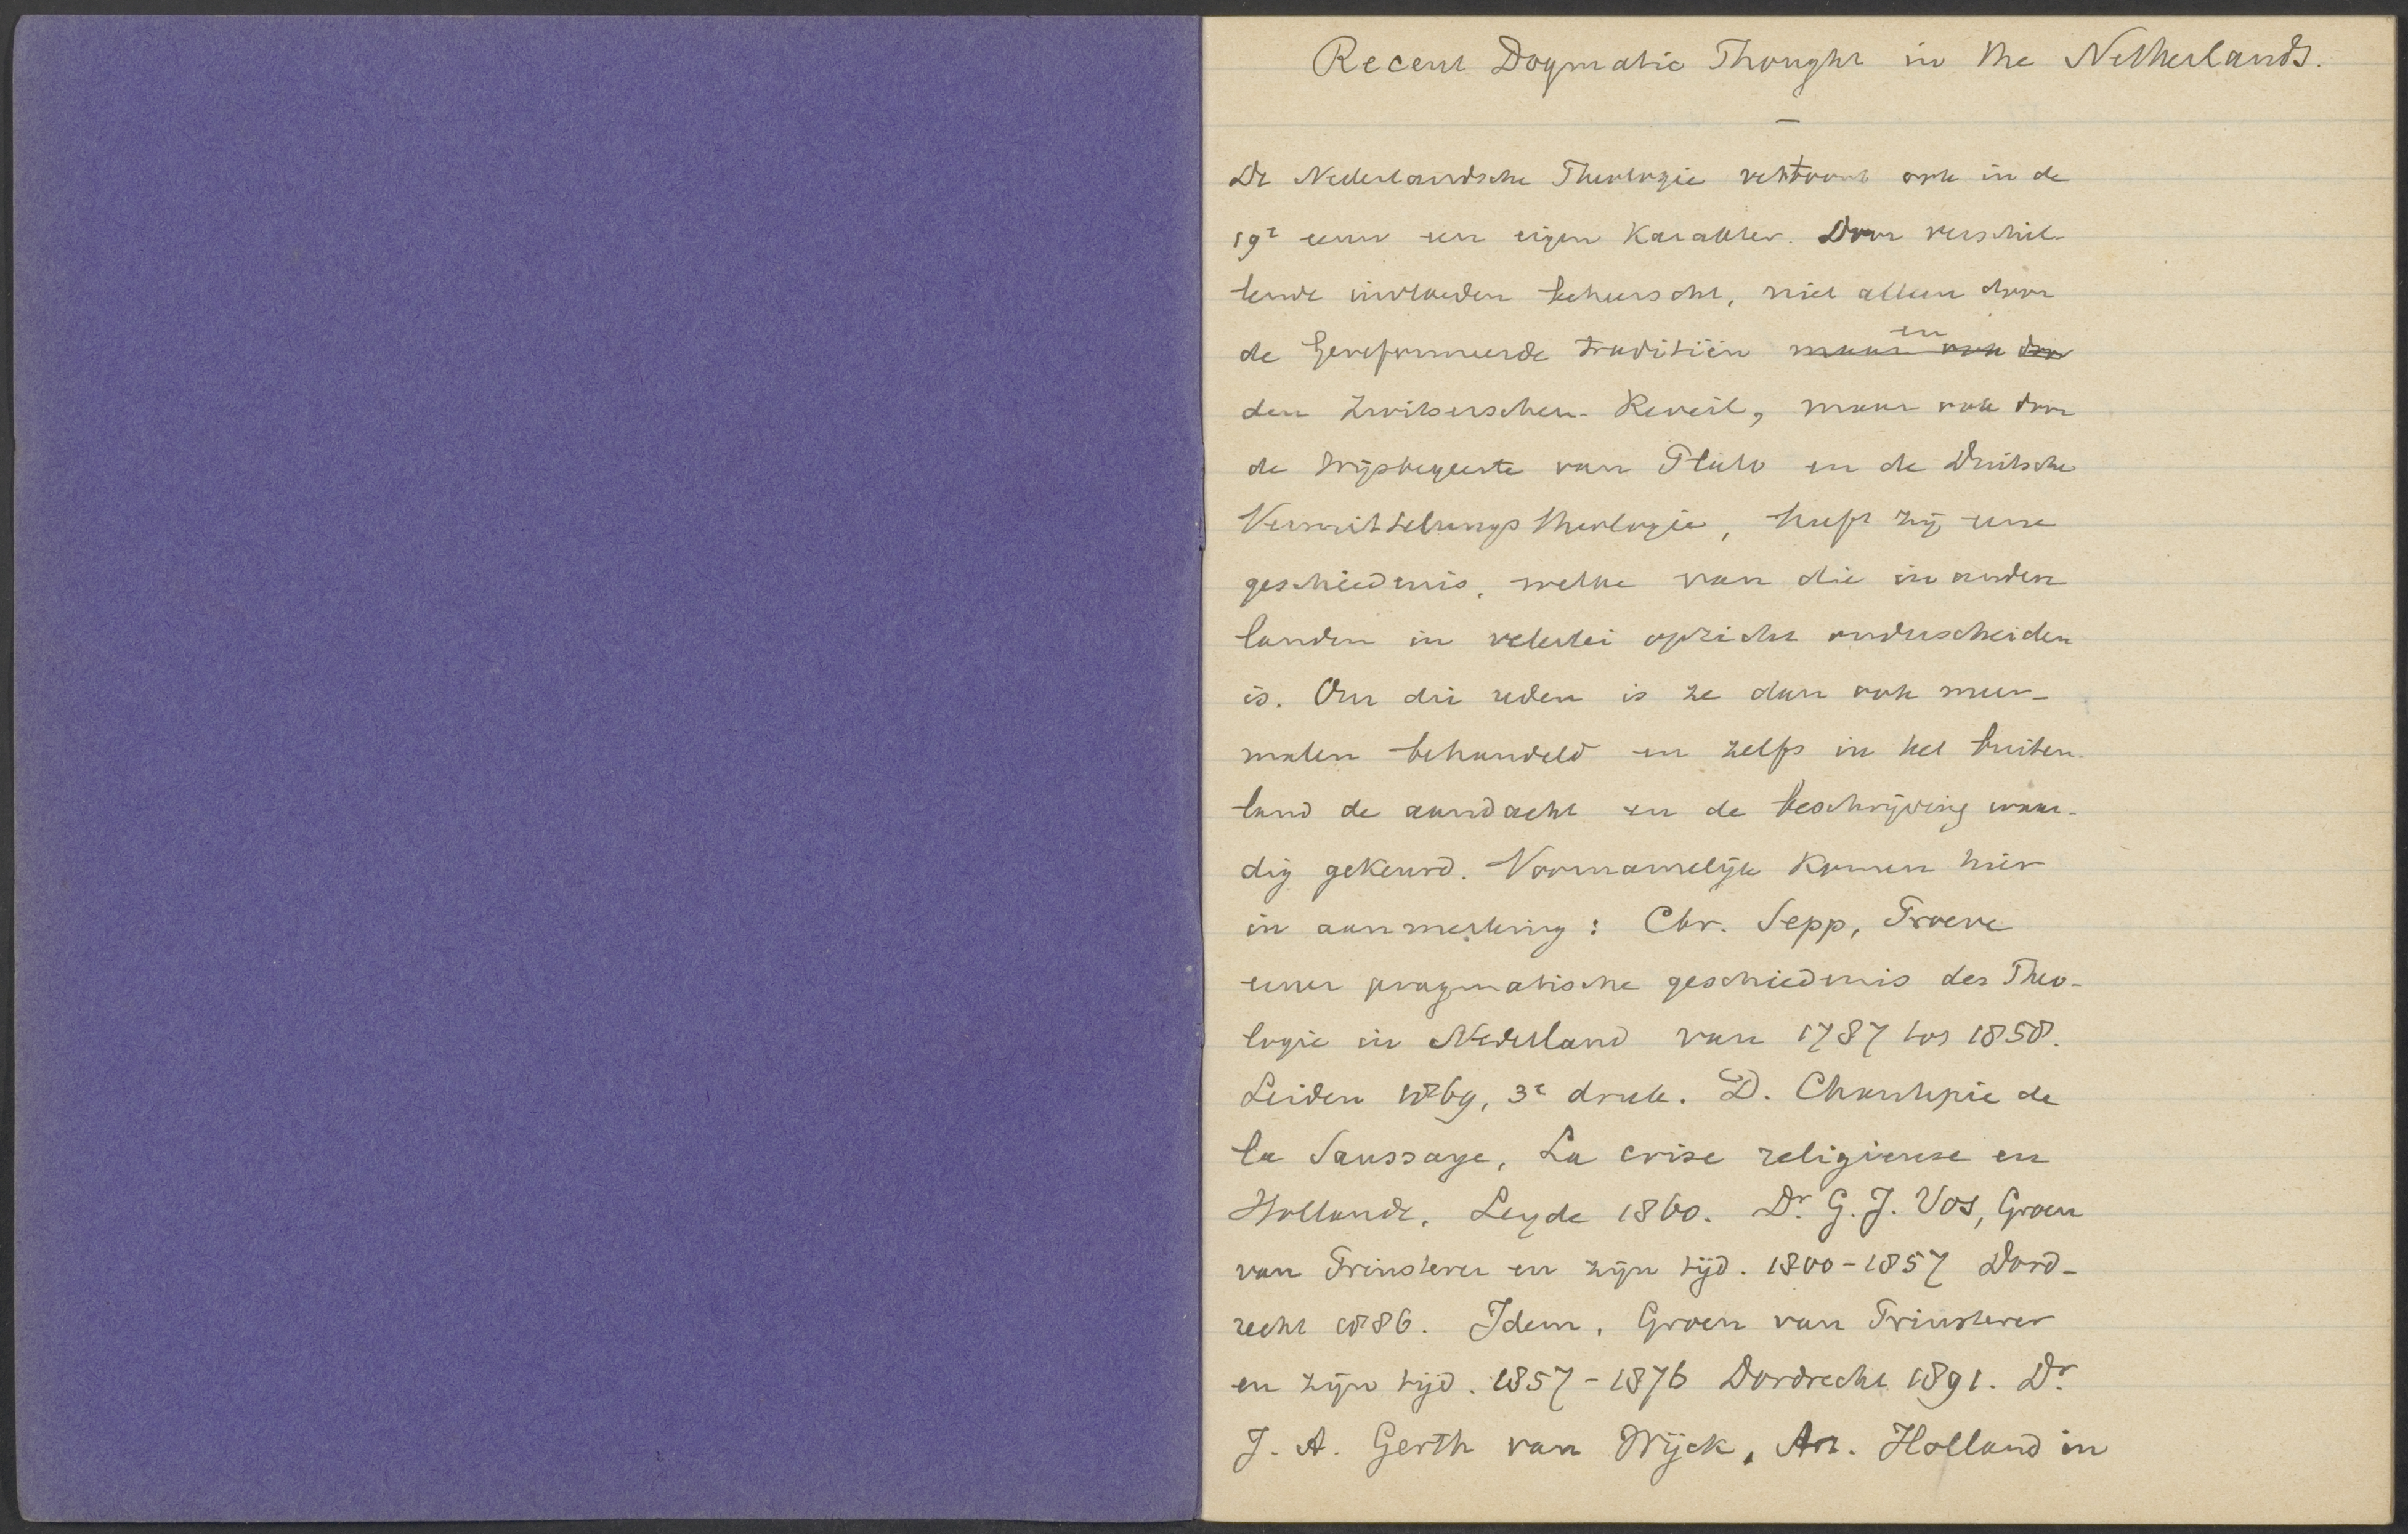 Recent Dogmatic Thought in the Netherlands.
De Nederlandsche Theologie vertoont ook in de
19e eeuw een eigen karakter. Door verschil-
lende invloeden beheerscht, niet alleen door
de Gereformeerde traditiën en maar ook door
den Zwitserschen Reveil, maar ook door
de Wijsbegeerte van Plato en de Duitsche
Vermittelungstheologie, heeft zij eene
geschiedenis, welke van die in andere
landen in velerlei opzicht onderscheiden
is. Om die reden is ze dan ook meer-
malen behandeld en zelfs in het buiten-
land de aandacht en de beschrijving waar-
dig gekeurd. Voornamelijk komen hier
in aanmerking: Chr. Sepp, Proeve
eener pragmatische geschiedenis der Theo-
logie in Nederland van 1787 tot 1858.
Leiden 1869, 3e druk. D. Chantepie de
la Saussaye, La crise religieuse en
Hollande, Leyde 1860. Dr. G. J. Vos, Groen
van Prinsterer en zijn tijd. 1800-1857 Dord-
recht 1886. Idem, Groen van Prinsterer
en zijn tijd. 1857-1876 Dordrecht 1891. Dr.
J. A. Gerth van Wijck, Art. Holland in